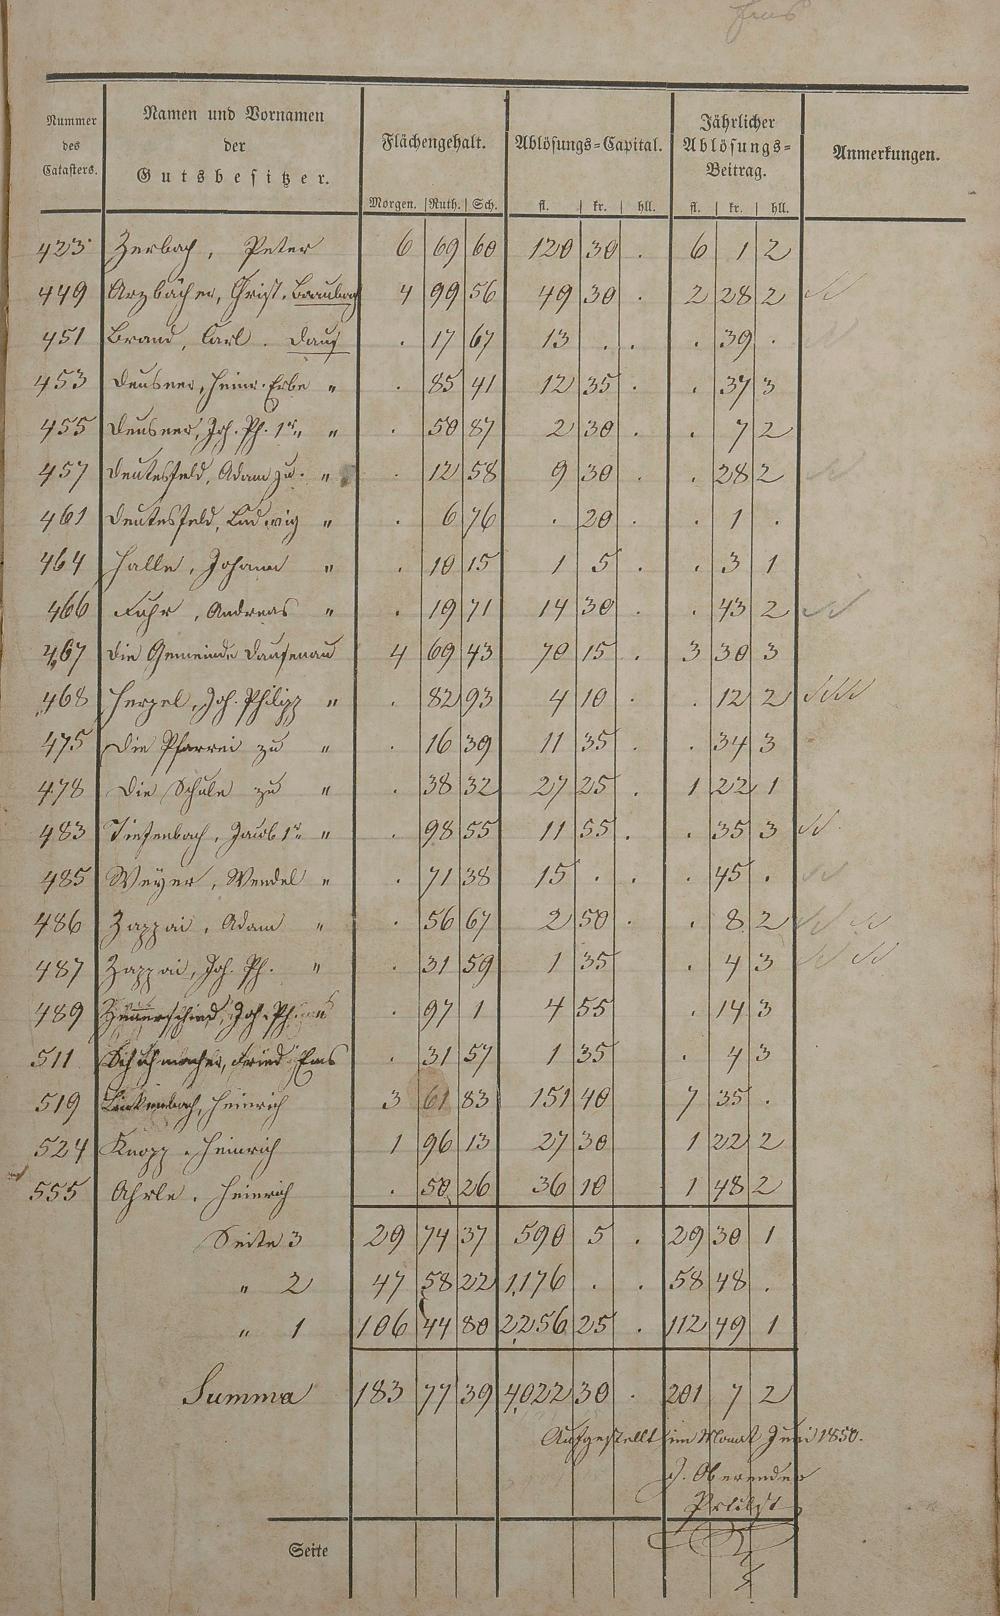 Nummer des Catasters. | Namen und Vornamen der Gutsbesitzer. | Flächengehalt. | Ablösungs=Capital. | Jährlicher Ablösungs=Beitrag. | Anmerkungen.
Morgen. | Ruth. | Sch. | fl. | kr. | hll. | fl. | kr. | hll.
423 Zerbach, Peter 6 69 60 120 30 . 6 1 2
449 Arzbächer, Christ. Braubach 4 99 56 49 30 . 2 28 2
451 Brand, Carl. Dauf . 17 67 13 . . . 39 .
453 Deusner, Heinr. Erbe " . 85 41 12 35 . . 37 3
455 Deusner, Joh. Ph. 1r " . 50 87 2 30 . . 7 2
457 Deutesfeld, Adam zu " . 12 58 9 30 . . 28 2
461 Deutesfeld, Ludwig " . 6 76 . 20 . . 1 .
464 Halle, Johann " . 10 15 1 5 . . 3 1
466 Fuhr, Andreas " . 19 71 14 30 . . 43 2
467 Die Gemeinde Dausenau 4 69 43 70 15 . 3 30 3
468 Herzel, Joh. Philipp " . 82 93 4 10 . . 12 2
475 Die Pfarrei zu " . 16 39 11 35 . . 34 3
478 Die Schule zu " . 38 32 27 25 . 1 22 1
483 Tiefenbach, Jacob 1r " . 98 55 11 55 . . 35 3
485 Weyer, Wendel " . 71 38 15 . . . 45 .
486 Zappai, Adam " . 56 67 2 50 . . 8 2
487 Zappai, Joh. Ph. " . 31 59 1 35 . 4 3
489 Joh. Ph. . 97 1 4 55 . 14 3
511 Schuhmacher, Fried. Ems . 31 57 1 35 . 4 3
519 Linkenbach, Heinrich 3 61 83 151 40 7 35 .
524 Knopp, Heinrich 1 96 13 27 30 1 22 2
555 Ahrle, Heinrich . 50 26 36 10 1 48 2
Seite 3 29 74 37 590 5 . 29 30 1
" 2 47 58 22 1,176 . . 58 48 .
" 1 106 44 80 2,256 25 . 112 49 1
Summa 183 77 39 4,022 30 . 201 7 2
Aufgestellt im Monat Juni 1850.
J. Oberender
Seite